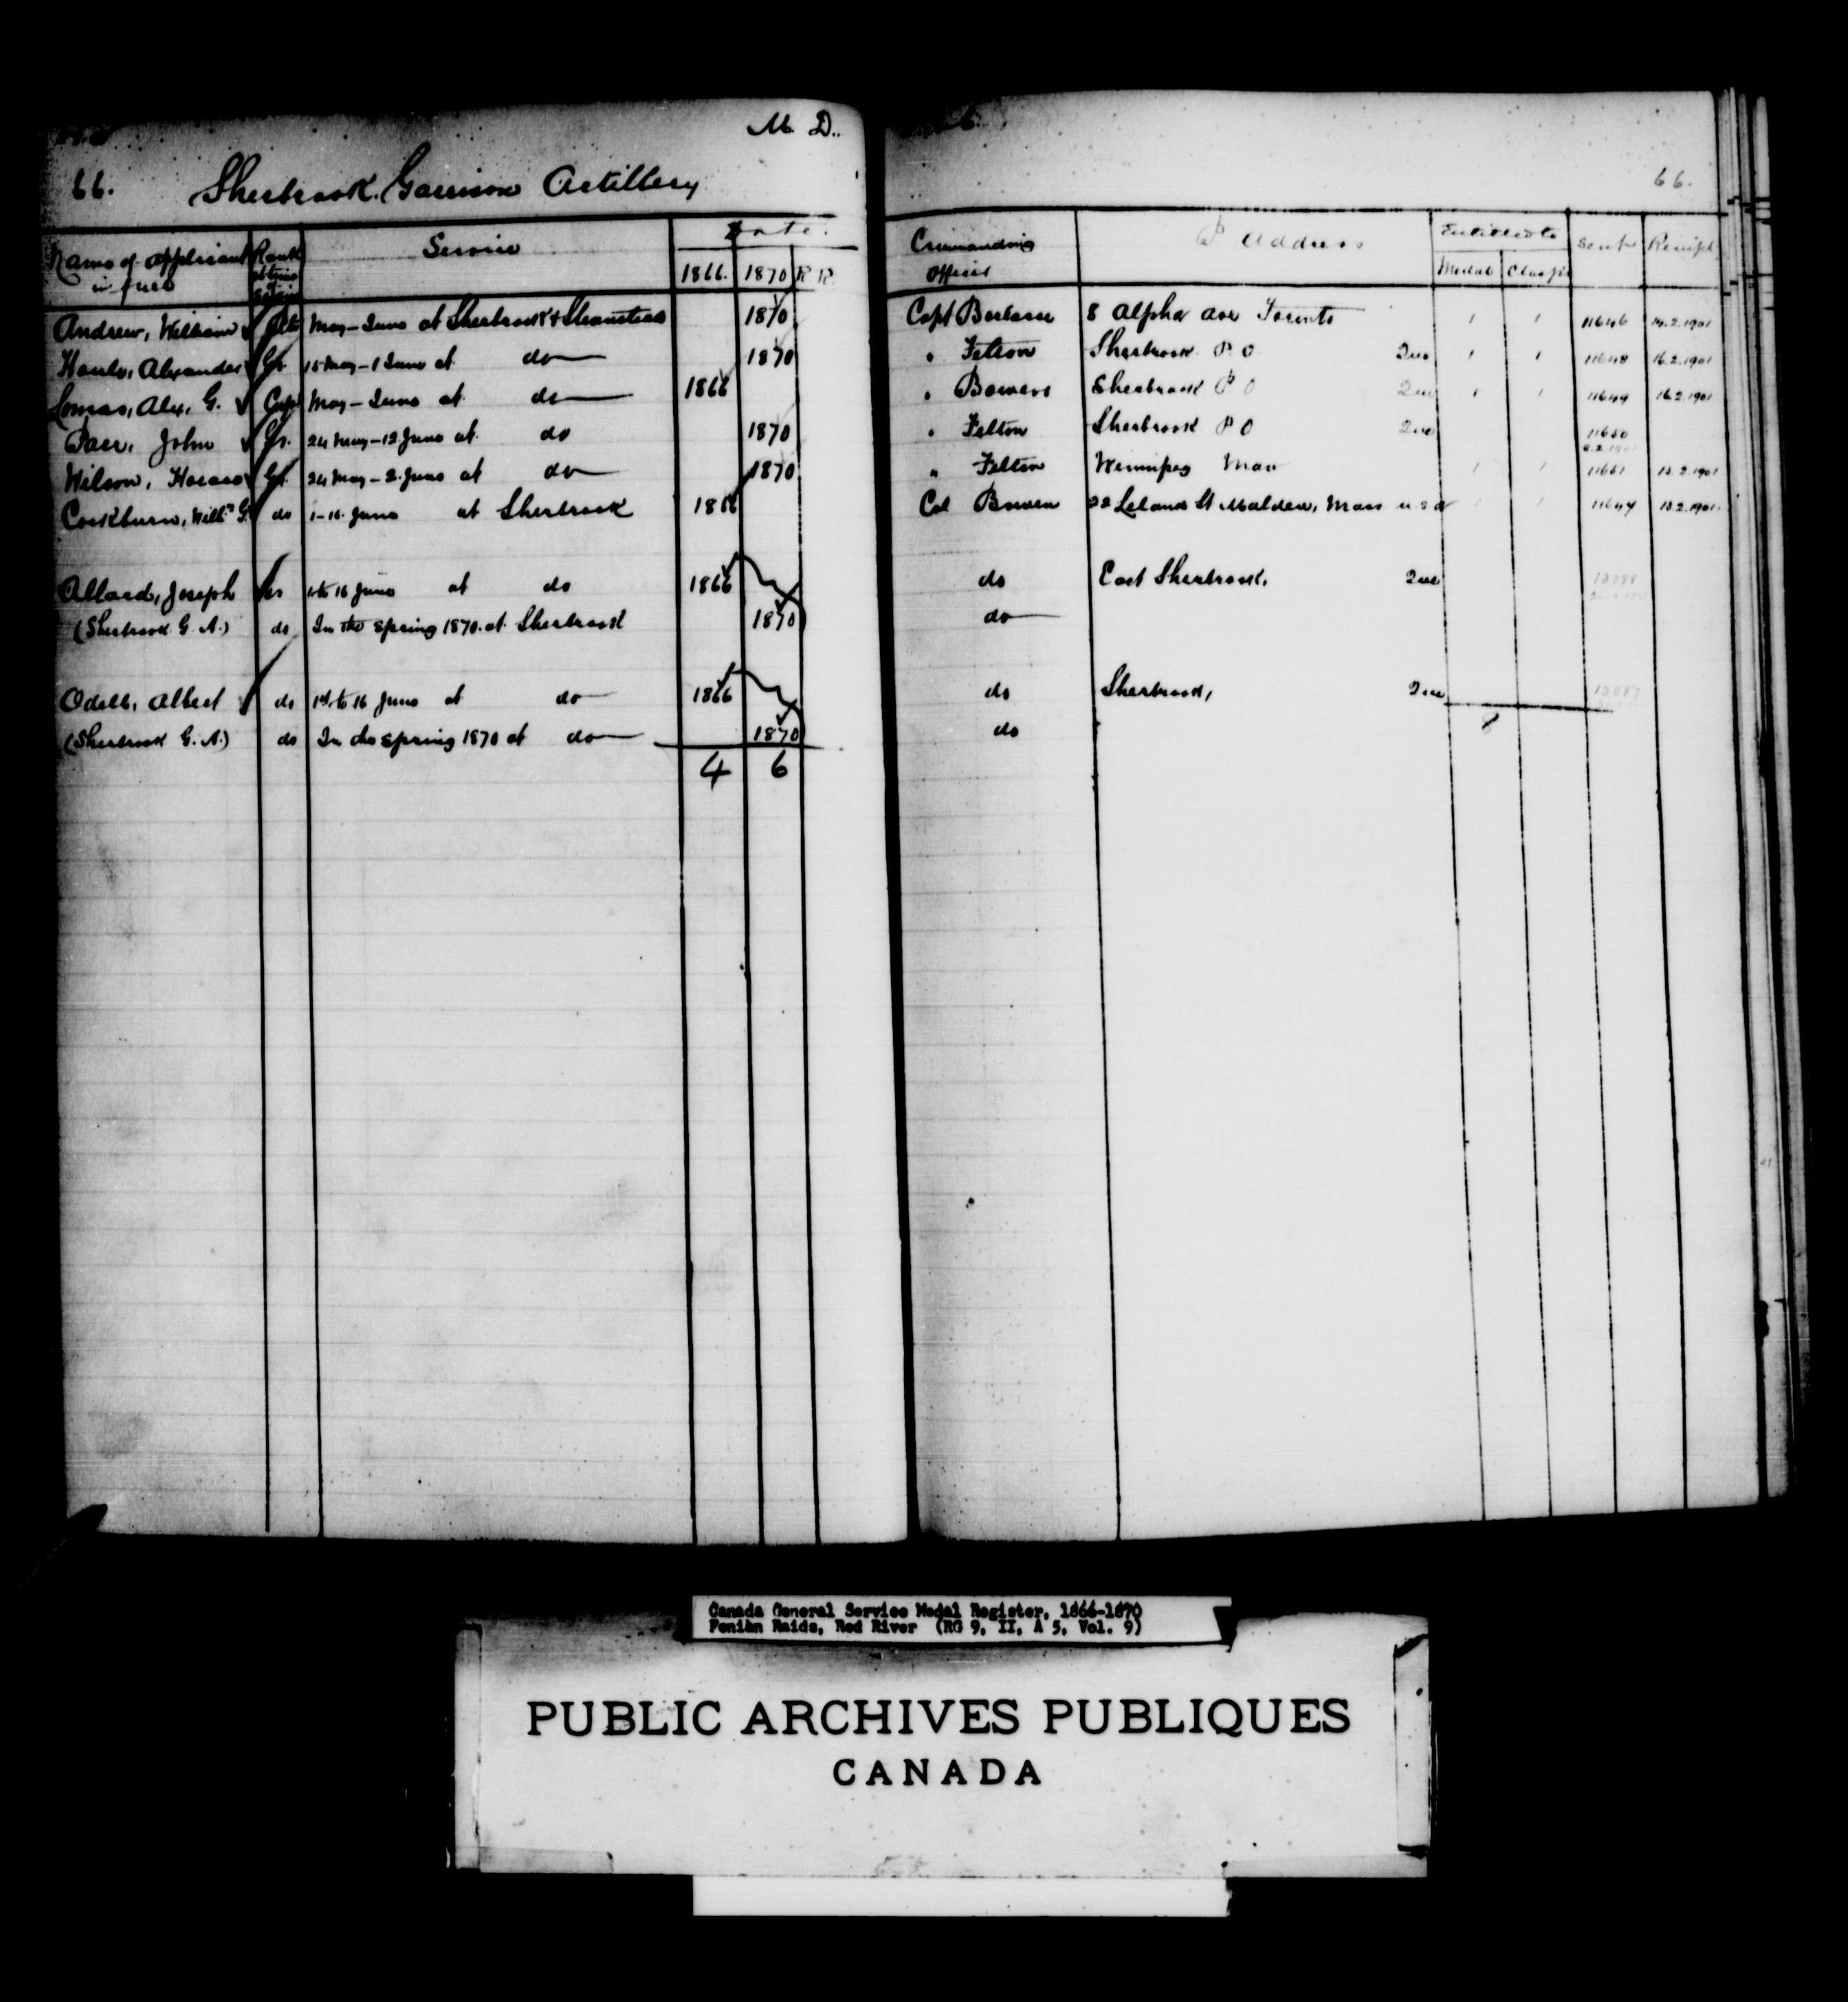 M. D..
66. Sherbrook. Garrison Artillery
66.
Name of applicant in full Rank Service Date. 1866. 1870 R R. Commanding Officer P Address Entitled to Medal Clasps Sent Receipt
Andrew, William May - June at Sherbrook & 1870 Capt 8 Alpha Ave Toronto 1 1 11646 14.2.1901
Alexander Gr. 18 May - 1 June at do 1870 " Felton Sherbrook P O Que 1 1 11648 16.2.1901
Lomas, Alex. G. Capt May - June at do 1866 " Bowen Sherbrook P O Que 1 1 11649 16.2.1901
Parr, John Gr. 24 May - 12 June at do 1870 " Felton Sherbrook P O Que 11650
Wilson, Horace Gr. 24 May - 2. June at do 1870 " Felton Winnipeg Man 1 1 11651 13.2.1901
Cockburn, Will.m G. do 1-16. June at Sherbrook 1866 Col Bowen 22 Leland St Malden, Mass U.S.A 1 1 11647 13.2.1901.
Allard, Joseph Gr 1 to 16 June at do 1866 do East Sherbrook, Que 13088
(Sherbrook G. A.) do In the spring 1870. at Sherbrook 1870 do
Odell, Albert do 1st to 16 June at do 1866 do Sherbrook, Que 13087
(Sherbrook G. A.) do In the spring 1870 at do 1870 do 8
4 6
Canada General Service Medal Register, 1866-1870
Fenian Raids, Red River (RG 9, II, A 5, Vol. 9)
PUBLIC ARCHIVES PUBLIQUES
CANADA